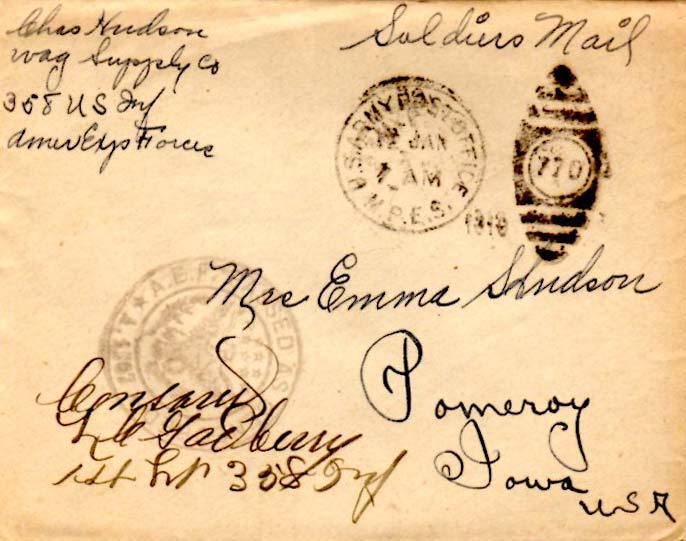 Chas Hudson
Wag Supply Co
358 U S Inf
Amer Exp Forces
Soldiers Mail
U.S. ARMY POST OFFICE
12 JAN
1 AM
M.P.E.S.
1919
770
Mrs Emma S Hudson
Pomeroy
Iowa
U S A
A.E.F. PASSED AS
Censored
1st Lt 358 Inf